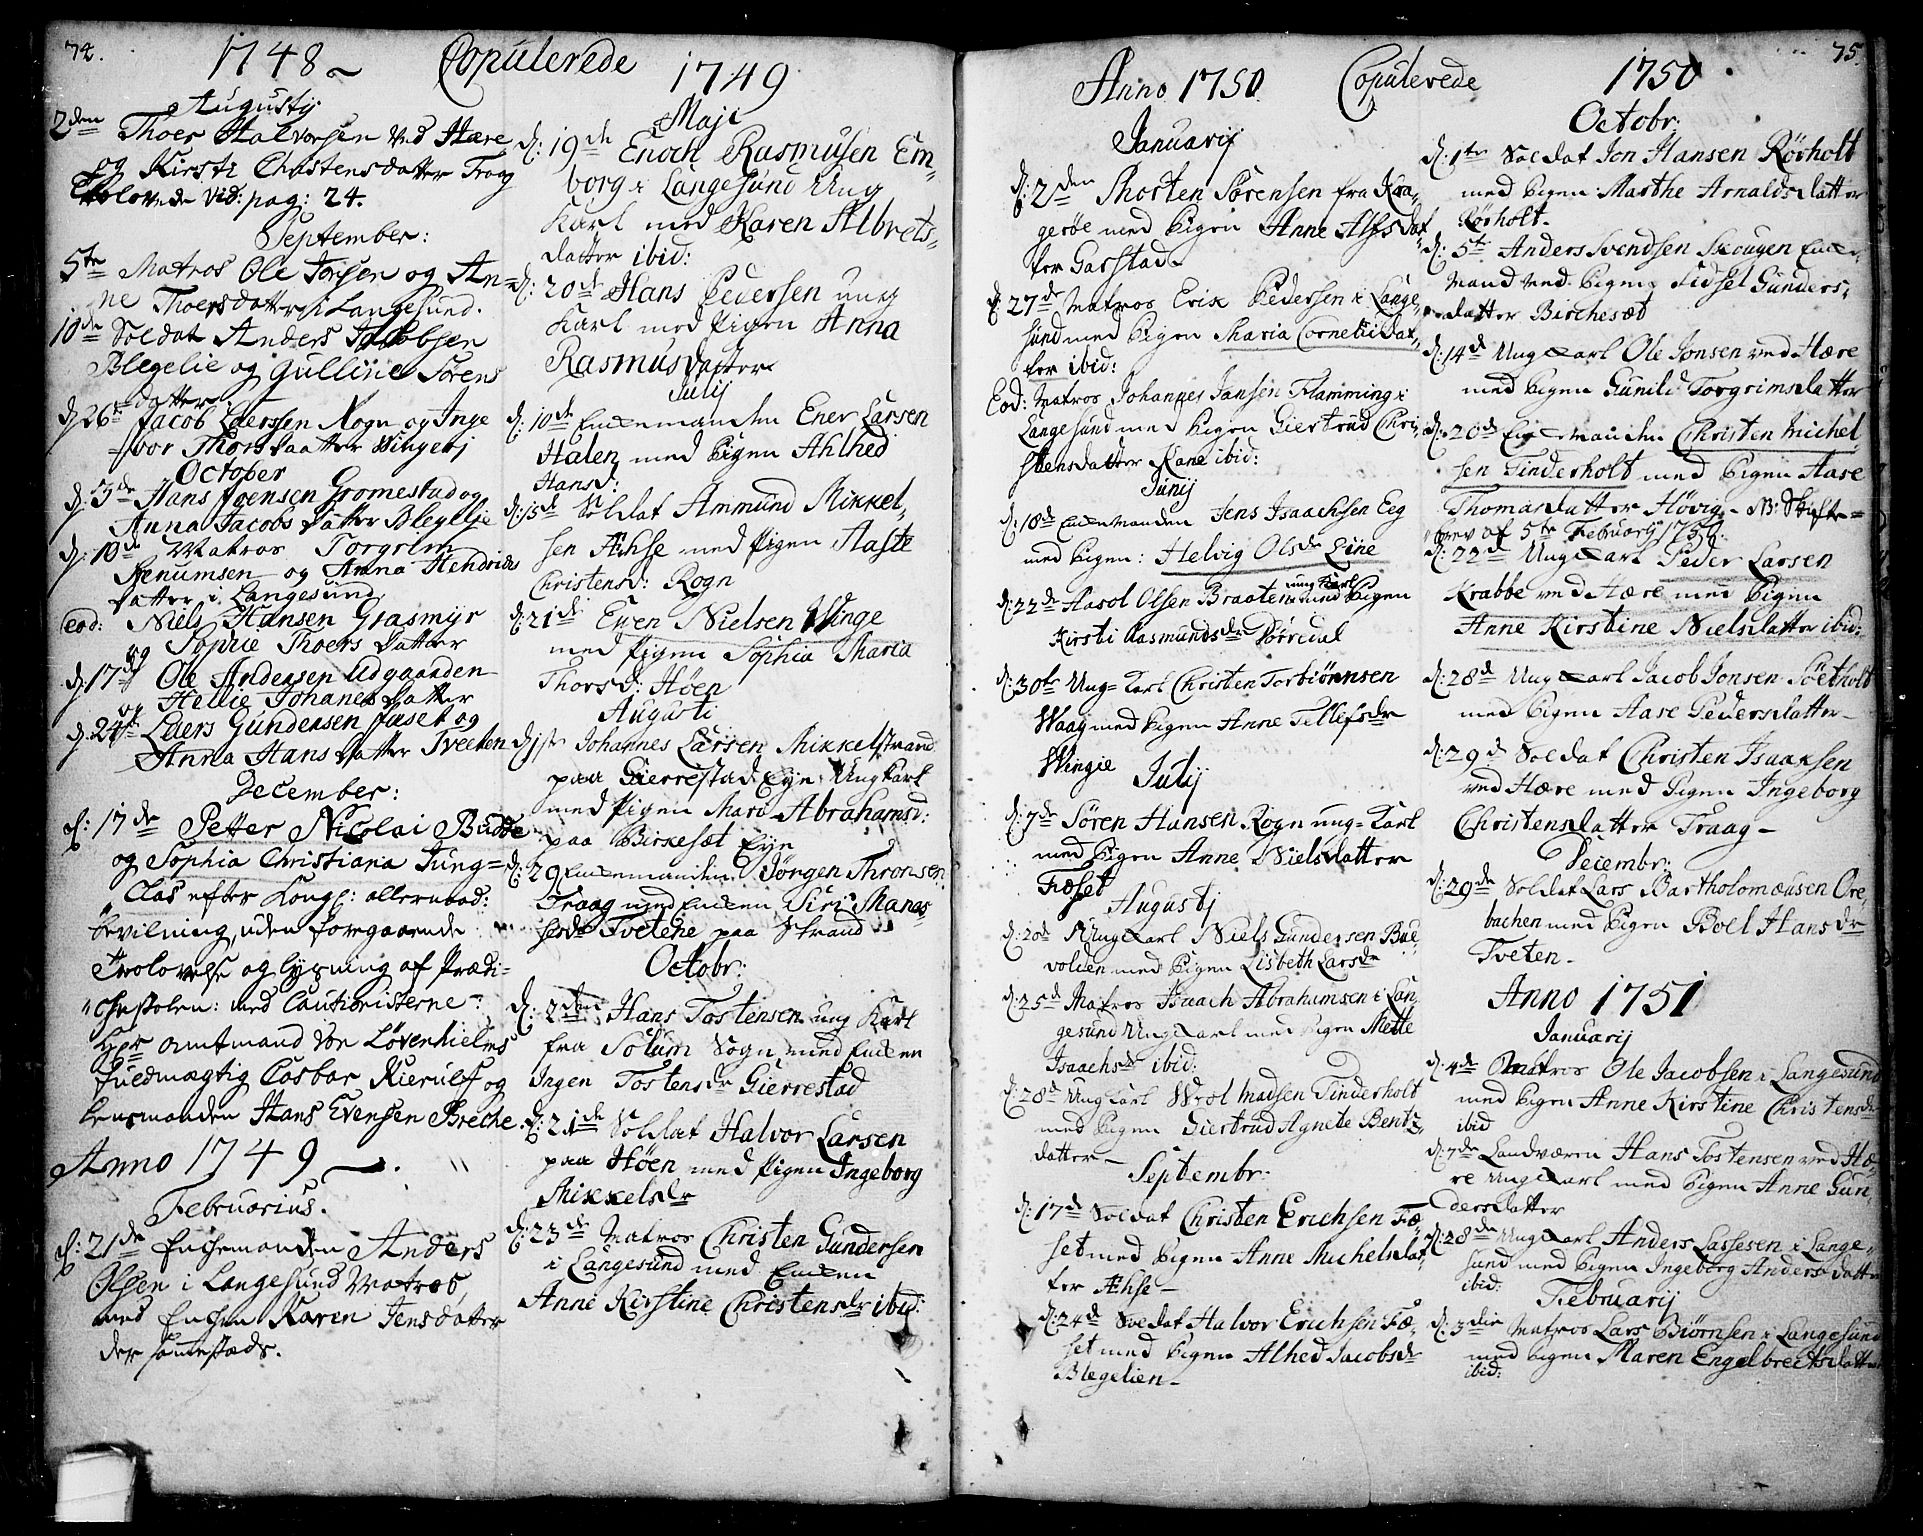 74.
1748 Copulerede
Augustj.
2den Thoer Halvorsen ved Hære
og Kirsti Christensdatter Traag
Trolovede vid: pag: 24.
September:
5te Matros Ole Jorsen og An-
ne Thoersdatter i Langesund.
10de Soldat Anders Jacobsen
Blegelie og Gulline Sörens
datter
d. 26te Jacob Laerssen Rogn og Inge
bor Thorsdaatter Wingerj
October
d: 3de Hans Joensen Gromestad og
Anna Jacobs Datter Blegelje
d: 10de Matros Torgrim
Stenumsen og Anna Hendrichs
datter i Langesund
eod: Niels Hansen Grasmyr
og Sophie Thoers Datter
d: 17de Ole Andersen Udgaarden
og Hellie Johanes Datter
d: 24de Laers Gundersen Fæset og
Anna Hans Datter Tveeten
December:
d: 17de Petter Nicolai Budde
og Sophia Christiana Jung-
Clas efter Kongl: allernaad:
bevilning, uden foregaaende
Trolovelse og lysning af Prædi-
chestolen: med Cautionisterne
Hr amtmand von Lövenhielms
fuldmægtig Casbar Kierulf og
lensmanden Hans Evensen Breche.
Anno 1749
Februarius.
d: 21de Enchemanden Anders
Olsen i Langesund Matros,
med Enchen Karen Jensdatter
der sammestæds.
1749
Maji
d: 19de Enoch Rasmusen Em-
borg i Langesund Ung
Karl med Karen Albrets-
datter ibid:
d: 20de Hans Pedersen ung
Karl med Pigen Anna
Rasmusdatter
Julij
d: 10de Enckemanden Ener Larsen
Halen med Pigen Ahlhed
Hansd:
d: 15de Soldat Ammund Mikkel-
sen Æhse med Pigen Aaste
Christensd: Rogn
d: 21de Even Nielsen Winge
med Pigen Sophia Maria
Thorsd: Höen
Augusti
d: 1ste Johannes Larsen Mikkelstrand
paa Gierrestad Eye Ung Karl
med Pigen Mari Abrahamsd:
paa Birkesæt Eye
d: 29 Enckemanden Jörgen Thronsen
Traag med Encken Siri Manes-
sesdr Tvetene paa Strand
Octobr:
d: 2den Hans Tostensen ung Karl
fra Solum Sogn med Encken
Ingen Tostensdr Gierrestad
d: 21de Soldat Halvor Larsen
paa Höen med Pigen Ingeborg
Mikkelsdr
d: 23de Matros Christen Gundersen
i Langesund med Encken
Anne Kirstine Christensdr ibid:
Anno 1750. Copulerede
Januarij
d: 2den Thorsten Sörensen fra Kra-
geröe med Pigen Anne Alfsdat-
ter Gasstad
d: 27de Matros Erik Pedersen i Lange-
sund med Pigen Maria Cornelii Dat-
ter ibid:
Eod: Matros Johannes Jansen Flamming i
Langesund med Pigen Giertrud Chri-
stensdatter Rane ibid:
Junij
d: 10de Enckemanden Jens Isaachsen Eeg
med Pigen: Helvig Olsdr Liine
d: 22de Aasol Olsen Braaten ung Karl med Pigen
Kirsti Rasmundsdr Pöredal
d: 30te Ung-Karl Christen Torbiönnsen
Waag med Pigen Anne Tellefsdr
Wingie
Julij
d: 7de Sören Hansen Rogn ung-Karl
med Pigen Anne Nielsdatter
Fæset
Augustj
d: 20de Ung Karl Niels Gundersen Bue-
volden med Pigen Lisbeth Larsdr
d: 25de Matros Isaach Abrahamsen i Lan-
gesund Ung Karl med Pigen Mette
Isaachsdr ibid:
d: 28de Ung Karl Wrol Madsen Tinderholt
med Pigen Giertrud Agnete Bentz-
datter
Septembr:
d: 17de Soldat Christen Erichsen Fæ-
set med Pigen Anne Michelsdat-
ter Æhse
d: 24de Soldat Halvor Erichsen Fæ-
set med Pigen Alhed Jacobsdr
Blegelien
75.
1750
Octobr:
d: 1te Soldat Jon Hansen Rörholt
med Pigen Marthe Arnaldsdatter
Rörholt.
d: 5te Anders Svendsen Skougen Encke-
mand med Pigen Sidsel Gunders-
datter Birchesæt
d: 14de Ung Karl Ole Jonsen ved Hære
med Pigen Gunild Torgrimsdatter
d: 20de Enckemanden Christen Michel
sen Tinderholt med Pigen Aase
Thomasdatter Hövig - NB: Skifte-
brev af 5te Februarij 1750.
d: 22de Ung Karl Peder Larsen
Krabbe ved Hære med Pigen
Anne Kirstine Nielsdatter ibid:
d: 28de Ung Karl Jacob Jonsen Söetholt
med Pigen Aase Pedersdatter
d: 29de Soldat Christen Isaaksen
ved Hære med Pigen Ingeborg
Christensdatter Traag
Deiembr:
d: 29de Soldat Lars Bartholomæusen Ore-
bachen med Pigen Boel Hansdr
Tveten
Anno 1751
Januarij
d: 4de Matros Ole Jacobsen i Langesund
med Pigen Anne Kirstine Christensdr
ibid
d: 7de Landværen Hans Tostensen ved Hæ-
re Ung Karl med Pigen Anne Gun-
dersdatter
d: 28de Ung Karl Anders Lassesen i Lange-
sund med Pigen Ingeborg Andersdatter
ibid:
Februarij
d: 3die Matros Lars Biörnsen i Langesund
med Pigen Maren Engelbreitsdatter
ibid: